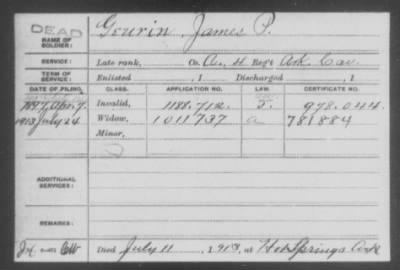 DEAD
NAME OF SOLDIER: Gourin, James P.
SERVICE: Late rank, Co. A, 4 Reg't Ark Cav.
TERM OF SERVICE: Enlisted , 1 Discharged , 1
DATE OF FILING. CLASS. APPLICATION NO. LAW. CERTIFICATE NO.
1897, Apr. 7. Invalid, 1188.712. J. 978.044
1913 July 24 Widow, 1011737 a 781884
Minor,
ADDITIONAL SERVICES:
REMARKS:
Died July 11, 1913, at Hot Springs Ark